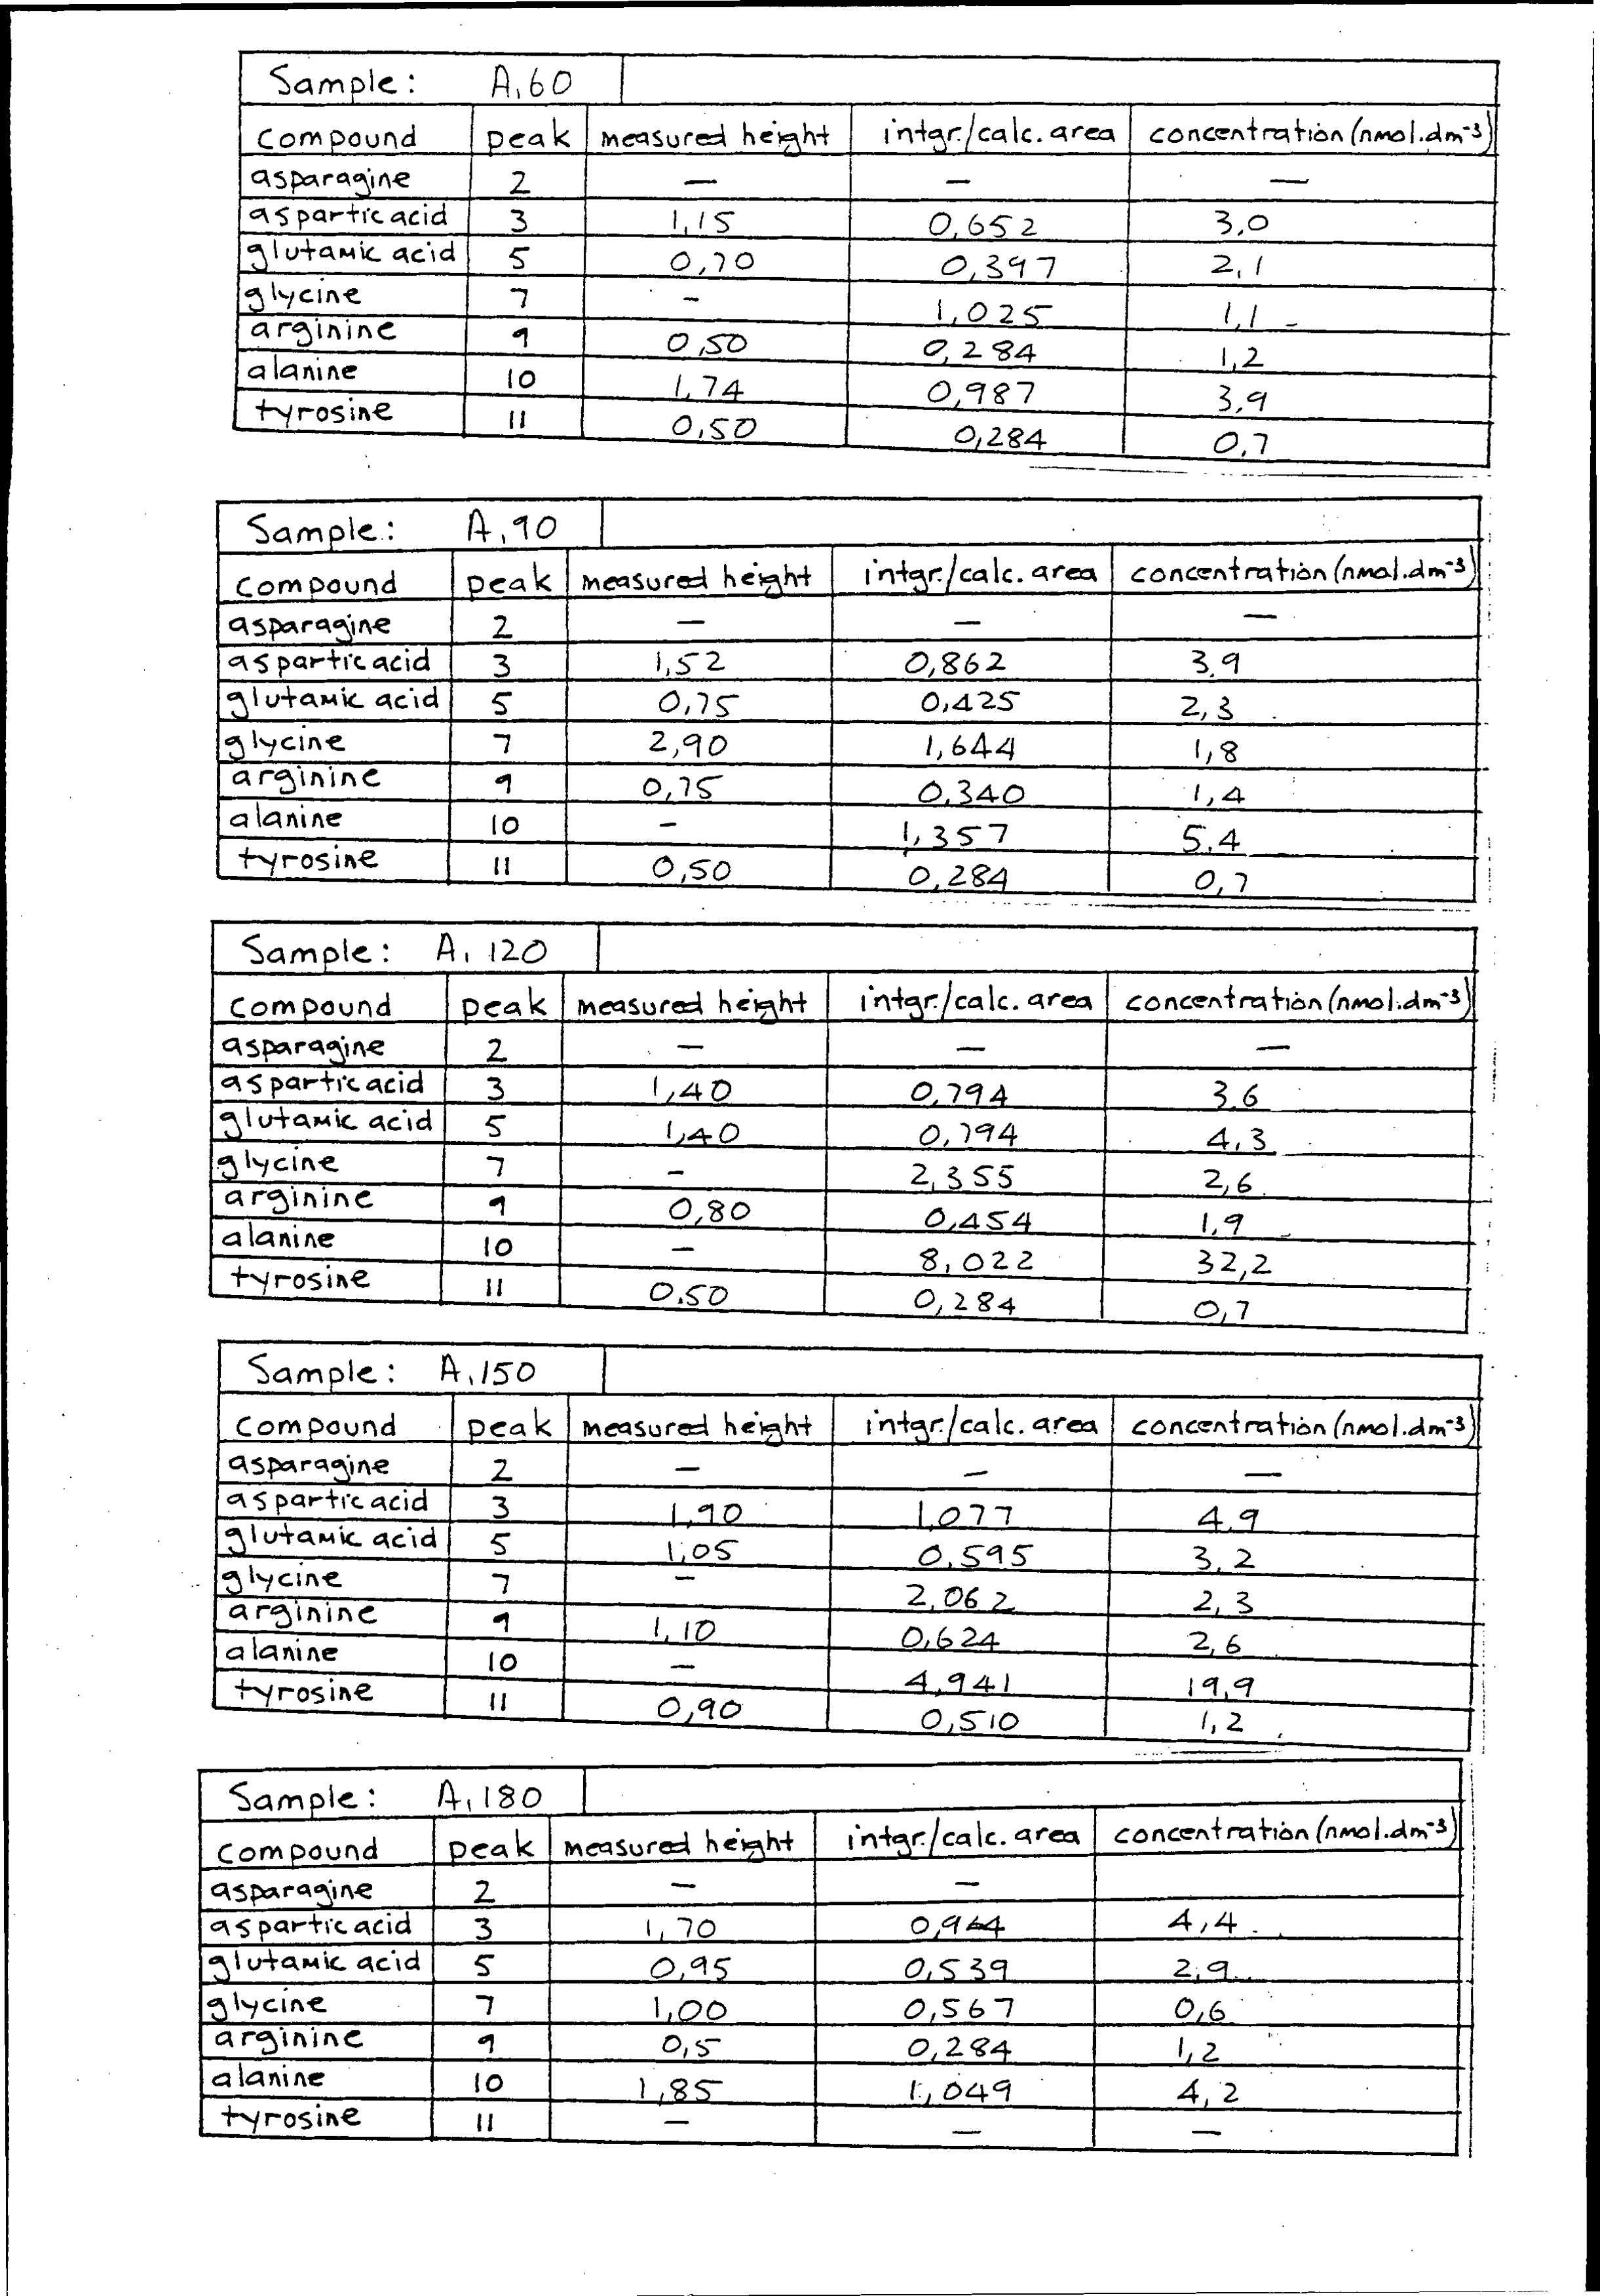 Sample: A, 60
compound peak measured height intgr./calc. area concentration (nmol.dm⁻³)
asparagine 2 — — —
aspartic acid 3 1,15 0,652 3,0
glutamic acid 5 0,70 0,397 2,1
glycine 7 - 1,025 1,1
arginine 9 0,50 0,284 1,2
alanine 10 1,74 0,987 3,9
tyrosine 11 0,50 0,284 0,7
Sample: A, 90
compound peak measured height intgr./calc. area concentration (nmol.dm⁻³)
asparagine 2 — — —
aspartic acid 3 1,52 0,862 3,9
glutamic acid 5 0,75 0,425 2,3
glycine 7 2,90 1,644 1,8
arginine 9 0,75 0,340 1,4
alanine 10 - 1,357 5,4
tyrosine 11 0,50 0,284 0,7
Sample: A, 120
compound peak measured height intgr./calc. area concentration (nmol.dm⁻³)
asparagine 2 — — —
aspartic acid 3 1,40 0,794 3,6
glutamic acid 5 1,40 0,794 4,3
glycine 7 - 2,355 2,6
arginine 9 0,80 0,454 1,9
alanine 10 - 8,022 32,2
tyrosine 11 0.50 0,284 0,7
Sample: A, 150
compound peak measured height intgr./calc. area concentration (nmol.dm⁻³)
asparagine 2 — — —
aspartic acid 3 1,90 1,077 4,9
glutamic acid 5 1,05 0,595 3,2
glycine 7 - 2,062 2,3
arginine 9 1,10 0,624 2,6
alanine 10 - 4,941 19,9
tyrosine 11 0,90 0,510 1,2
Sample: A, 180
compound peak measured height intgr./calc. area concentration (nmol.dm⁻³)
asparagine 2 — —
aspartic acid 3 1,70 0,944 4,4
glutamic acid 5 0,95 0,539 2,9
glycine 7 1,00 0,567 0,6
arginine 9 0,5 0,284 1,2
alanine 10 1,85 1,049 4,2
tyrosine 11 — — —